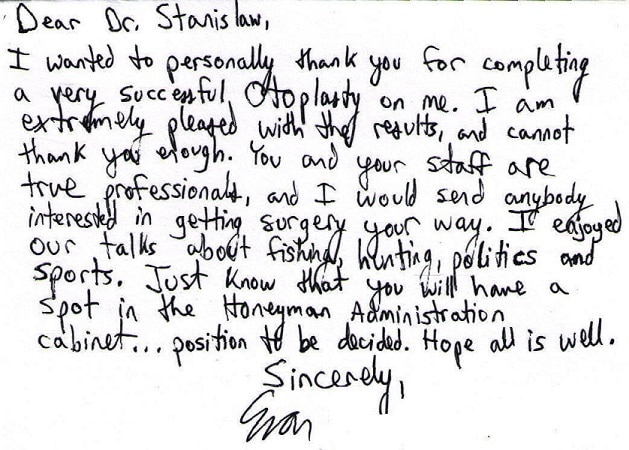 Dear Dr. Stanislaw,
I wanted to personally thank you for completing
a very successful Otoplasty on me. I am
extremely pleased with the results, and cannot
thank you enough. You and your staff are
true professionals, and I would send anybody
interested in getting surgery your way. I enjoyed
our talks about fishing, hunting, politics and
sports. Just know that you will have a
spot in the Honeyman Administration
cabinet... position to be decided. Hope all is well.
Sincerely,
Evan